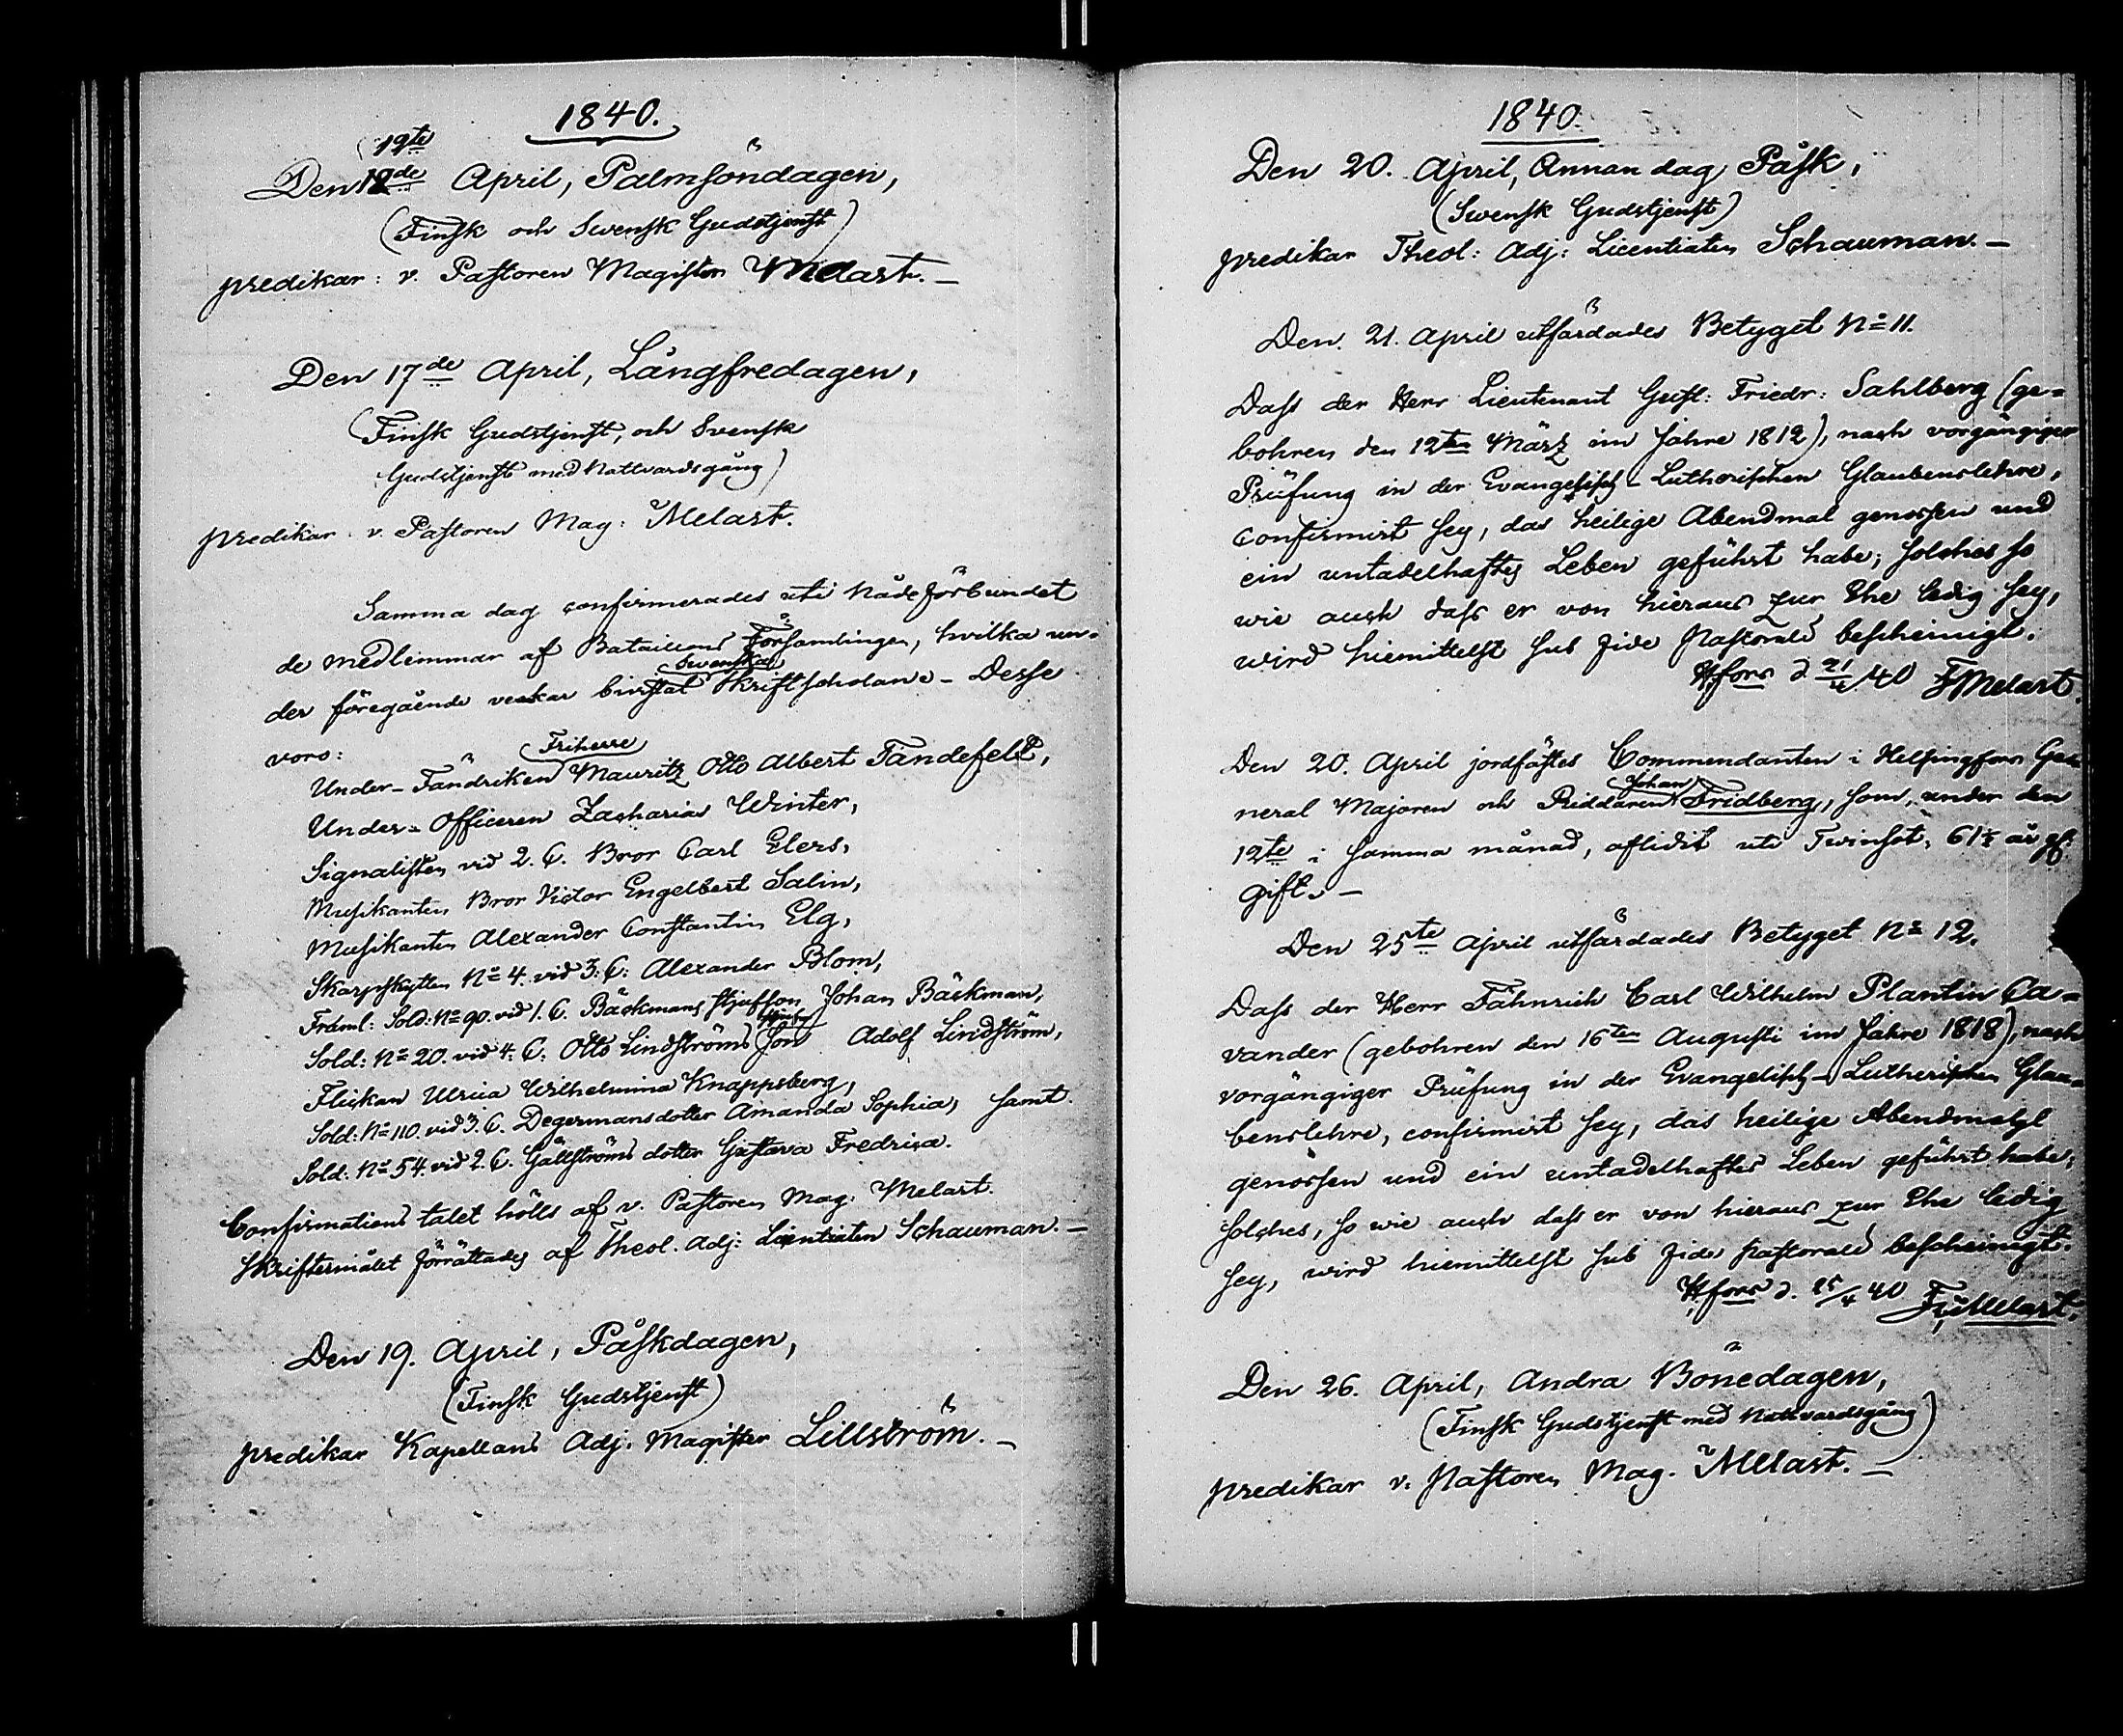 1840.
12te
Den 12de April, Palmsöndagen,
(Finsk och Swensk Gudstjenst)
predikar: v. Pastoren Magister Melart. –
Den 17de April, Långfredagen,
(Finsk Gudstjenst, och Svensk
Gudstjenst med Nattvardsgång)
predikar v. Pastoren Mag: Melart.
Samma dag confirmerades uti Nådeförbundet
de medlemmar af Bataillons Församlingen, hvilka un-
der föregående veckor bivistat Swenska Skriftscholan. – Desse
voro:
Under-Fändriken Friherre Mauritz Otto Albert Fandefelt,
Under-Officeren Zacharias Winter,
Signalisten vid 2. C. Bror Carl Elers,
Musikanten Bror Victor Engelbert Salin,
Musikanten Alexander Constantin Elg,
Skarpskytten No 4. vid 3: C: Alexander Blom,
Framl: Sold: No 90. vid 1. C. Bäckmans stjufson Johan Bäckman,
Sold: No 20. vid 4: C: Otto Lindströms son Adolf Lindström,
Flickan Ulrica Wilhelmina Knappsberg,
Sold: No 110. vid 3. C. Degermans dotter Amanda Sophia, samt
Sold: No 54. vid 2. C. Gällströms dotter Gustava Fredrica.
Confirmations talet hölls af v. Pastoren Mag. Melart.
Skriftermålet förrättades af Theol. Adj: Licentiaten Schauman. –
Den 19. April, Påskdagen,
(Finsk Gudstjenst)
predikar Kapellans Adj. Magister Lillström. –
1840.
Den 20. April, Annan dag Påsk,
(Swensk Gudstjenst)
predikar Theol: Adj: Licentiaten Schauman. –
Den 21. April utfärdades Betyget No 11.
Dass der Herr Lieutenant Gust: Friedr: Sahlberg (ge-
bohren den 12ten März im Jahre 1812), nach vorgängiger
Prüfung in der Evangelisch-Lutherischen Glaubenslehre,
confirmirt sey, das heilige Abendmal genossen und
ein untadelhaftes Leben geführt habe; solches so
wie auch dass er von hieraus zur Ehe ledig sey,
wird hiemittelst sub fide pastorali bescheinigt.
Hfors d 21/4 40 F Melart.
Den 20. April jordfästes Commendanten i Helsingfors Ge-
neral Majoren och Riddaren Johan Fridberg, som, under den
12te i samma månad, aflidit uti Twinsot, 61½ år gl.
gift. –
Den 25te April utfärdades Betyget No 12.
Dass der Herr Fähnrich Carl Wilhelm Plantin Ca-
vander (gebohren den 16ten Augusti im Jahre 1818), nach
vorgängiger Prüfung in der Evangelisch-Lutherischen Glau-
benslehre, confirmirt sey, das heilige Abendmahl
genossen und ein untadelhaftes Leben geführt habe;
solches, so wie auch dass er von hieraus zur Ehe ledig
sey, wird hiemittelst sub fide pastorali bescheinigt.
Hfors d. 25/4 40 F Melart.
Den 26. April, Andra Bönedagen,
(Finsk Gudstjenst med Nattvardsgång)
predikar v. Pastoren Mag. Melart. –